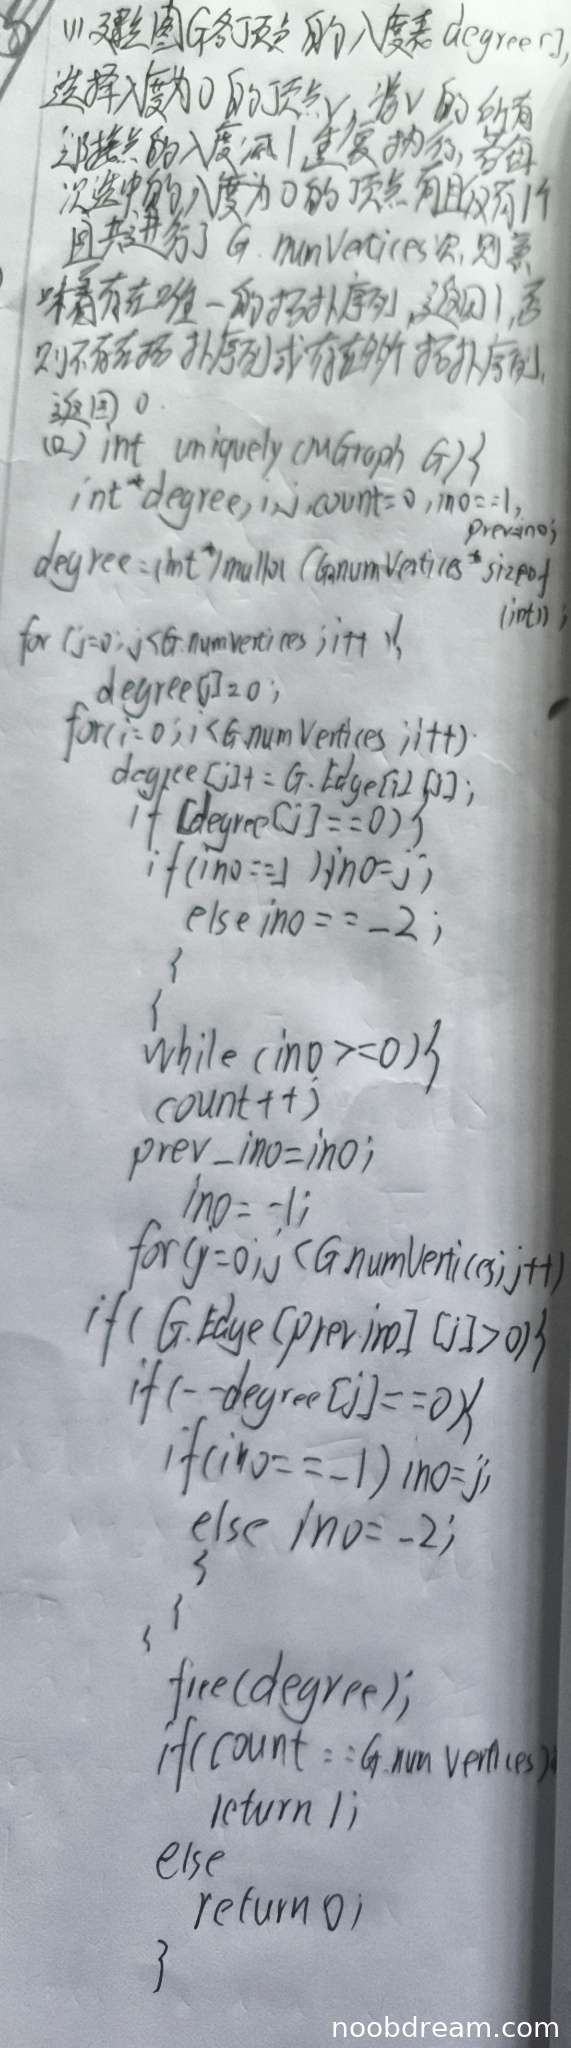 (1)建立图G各顶点的入度表degree[],
选择入度为0的顶点v,将v的所有
邻接点的入度减1,重复执行,若每
次选中的入度为0的顶点有且仅有1个
且共进行了G.numVertices次,则意
味着存在唯一的拓扑序列,返回1,否
则不存在拓扑序列或存在多个拓扑序列,
返回0.
(2) int uniquely (MGraph G){
int*degree,i,j,count=0,ino=-1,
prev_ino;
degree=(int*)malloc(G.numVertices*sizeof
(int));
for(j=0;j<G.numvertices;i++){
degree[j]=0;
for(i=0;i<G.numVertices;i++)
degree[j]+=G.Edge[i][j];
if(degree[j]==0){
if(ino==-1)ino=j;
else ino==-2;
}
}
while(ino>=0){
count++;
prev_ino=ino;
ino=-1;
for(j=0;j<G.numVertices;j++)
if(G.Edge[prev_ino][j]>0){
if(--degree[j]==0){
if(ino==-1)ino=j;
else ino=-2;
}
}
}
free(degree);
if(count==G.numVertices)
return 1;
else
return 0;
}
noobdream.com